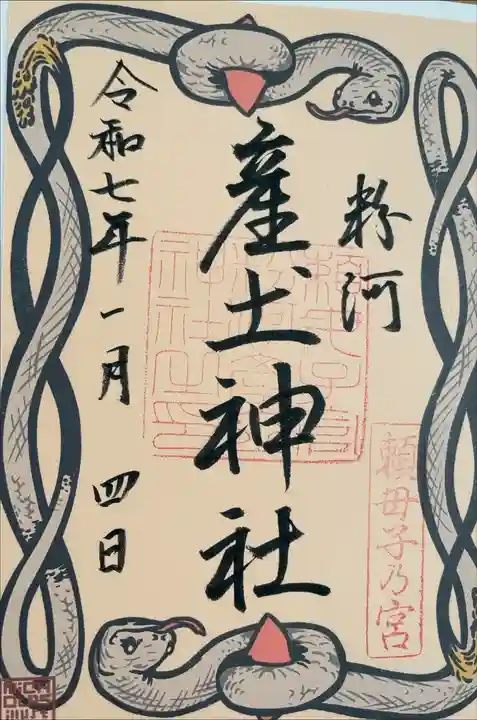 粉河
頼母子乃宮
産土神社
令和七年一月 四日